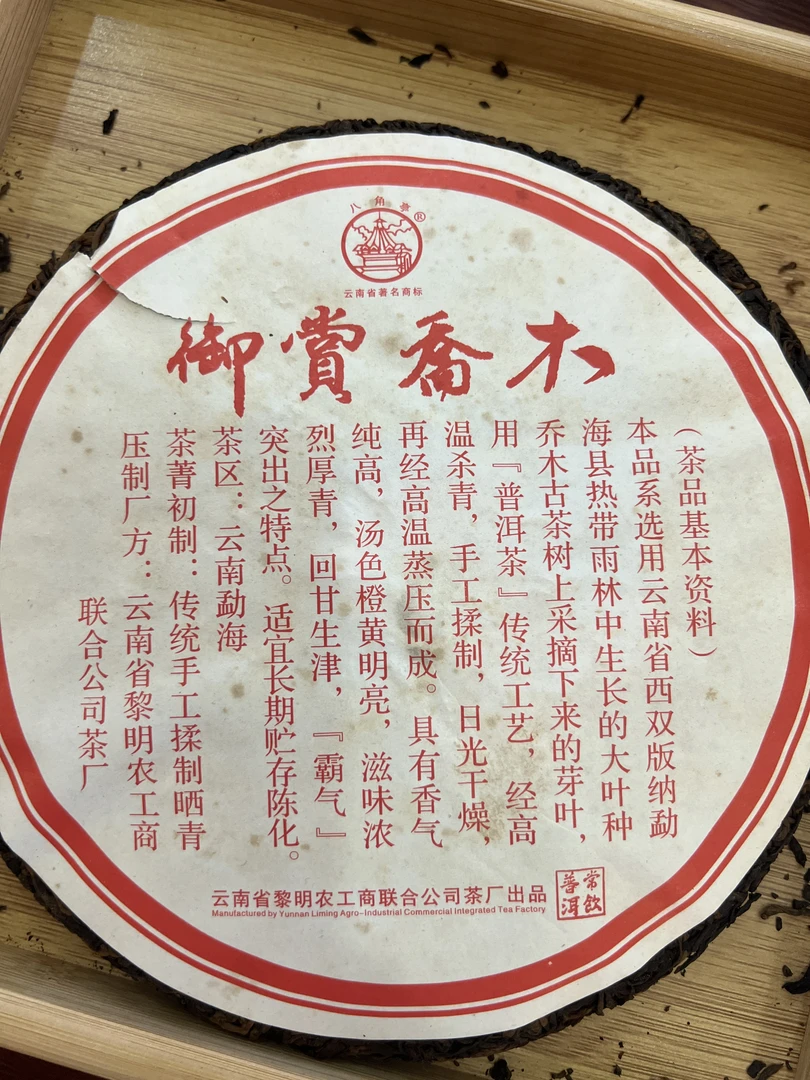 八角亭®
云南省著名商标
御賞喬木
（茶品基本资料）
本品系选用云南省西双版纳勐
海县热带雨林中生长的大叶种
乔木古茶树上采摘下来的芽叶，
用『普洱茶』传统工艺，经高
温杀青，手工揉制，日光干燥，
再经高温蒸压而成。具有香气
纯高，汤色橙黄明亮，滋味浓
烈厚青，回甘生津，『霸气』
突出之特点。适宜长期贮存陈化。
茶区：云南勐海
茶菁初制：传统手工揉制晒青
压制厂方：云南省黎明农工商
联合公司茶厂
云南省黎明农工商联合公司茶厂出品
Manufactured by Yunnan Liming Agro-Industrial Commercial Integrated Tea Factory
常飲
普洱